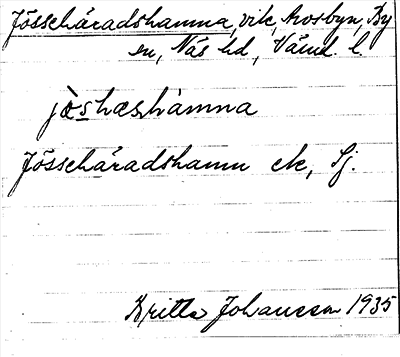 Jösschäradshamna, vik, Arosbyn, By
en, Näs hd, Värml. l
jò̀shæshàmna
Jösschäradshamn ek, Sj.
Britta Johansson 1935